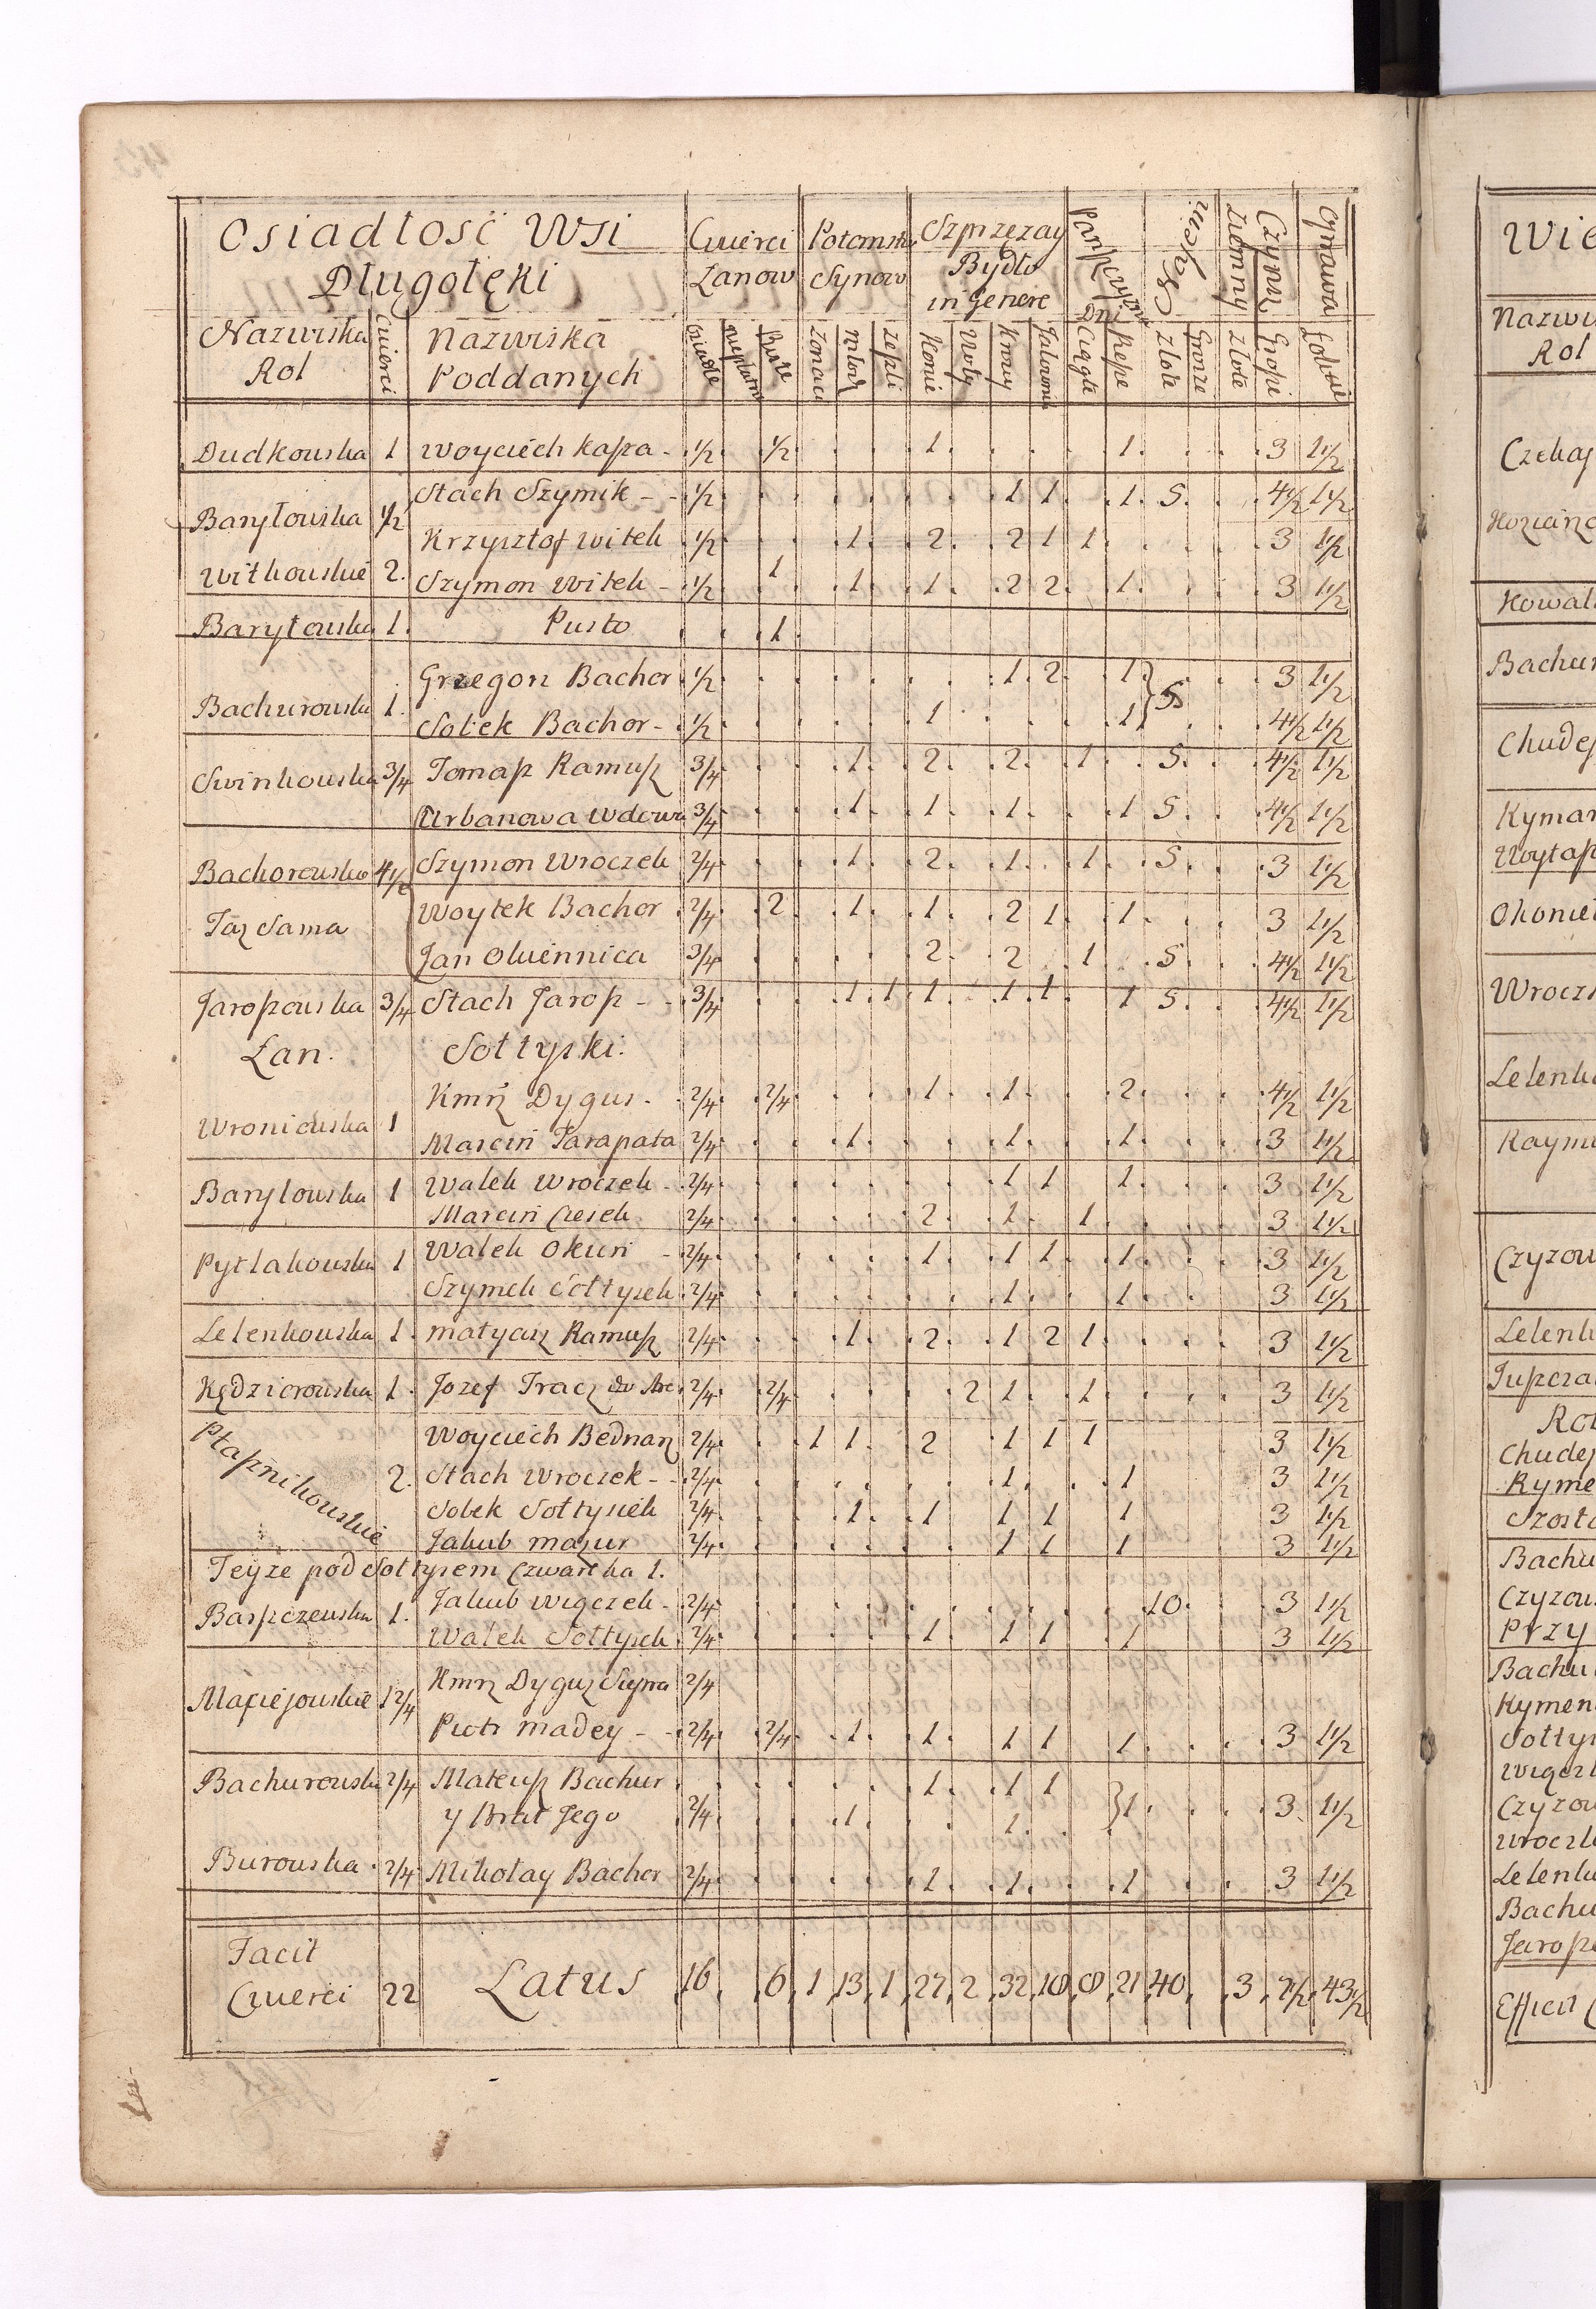 Osiadłosc Wsi
Długołęki
Cwierci
Łanow
Potomstw
Synow
Szprzęzay
Bydło
in Genere
Panszczyzna
Dni
Czynsz
Ziemny
Oprawa
Nazwiska
Rol
Cwierci
Nazwiska
Poddanych
Zonaci
Młodz
Zepli
Konie
Woły
Krowy
Ciągłe
Piesze
Złote
Grosze
Złote
Grosze
Dudkowska 1 Woyciech Kapa - ½ ½ 1 1 3 1½
Stach Szymik - ½ 1 1 1 5 4½ 1½
Baryłowska ½
Krzysztof Witek ½ 1 2 2 1 1 3 1½
Witkowskie 2. Szymon Witek - ½ 1 1 1 2 2 1 3 1½
Baryłowska 1. Pusto 1
Grzegorz Bachor ½ 1 2 1 } 5 3 1½
Bachurowska 1.
Sobek Bachor - ½ 1 1 4½ 1½
Swinkowska ¾ Tomasz Kamusz ¾ 1 2 2 1 5 4½ 1½
Urbanowa Wdowa ¾ 1 1 1 1 5 4½ 1½
Bachorowska 4½ Szymon Wroczek 2/4 1 2 1 1 5 3 1½
Taz Sama Woytek Bachor 2/4 2 1 1 2 1 1 3 1½
Jan Oliwiennica ¾ 2 2 1 5 4½ 1½
Jaroszowska ¾ Stach Jarosz - ¾ 1 1 1 1 1 1 5 4½ 1½
Łan. Sołtyski.
Kmrz Dygus - 2/4 2/4 1 1 2 4½ 1½
Wroniowska 1
Marcin Tarapata 2/4 1 1 1 3 1½
Baryłowska 1 Walek Wroczek - 2/4 1 1 1 3 1½
Marcin Ciesek 2/4 2 1 1 3 1½
Pytlakowska 1 Walek Okun - 2/4 1 1 1 1 3 1½
Szymek Sołtysek 2/4 1 1 3 1½
Lelenkowska 1. Matyasz Kamusz 2/4 1 2 1 2 1 3 1½
Kędzierowska 1. Jozef Tracz 2/4 2/4 2 1 1 3 1½
Woyciech Bednarz 2/4 1 1 2 1 1 1 3 1½
Ptasznikowskie 2. Stach Wroczek - 2/4 1 1 3 1½
Sobek Sołtysiek 2/4 1 1 1 1 1 3 1½
Jakub Mazur 2/4 1 1 1 3 1½
Teyze pod Sołtysem Czwartka 1.
Baszczewska 1. Jakub Więczek - 2/4 10 3 1½
Walek Sołtysek 2/4 1 1 1 1 3 1½
Kmrz Dygusz 2/4
Maciejowskie 1 2/4
Piotr Madey - 2/4 2/4 1 1 1 1 1 3 1½
Bachurowska 2/4 Mateusz Bachur 1 1 1
y Brat Jego 2/4 1 1 } 1 3 1½
Burowska 2/4 Mikołay Bachor 2/4 1 1 1 3 1½
Facit
Cwierci 22 Latus 16 6 1 13 1 27 2 32 18 8 21 40 3 7½ 43½
Nazwis
Rol
Czekaj
Kowal
Bachur
Chudej
Kymar
Woytasz
Okonie
Wrocz
Lelenk
Kaym
Czyzow
Lelenk
Rol
Chudej
Kyme
Szost
Bachu
Czyzow
Przy
Bachu
Kymen
Sołty
Więcz
Czyzow
Wroczk
Lelenk
Bachu
Jarosz